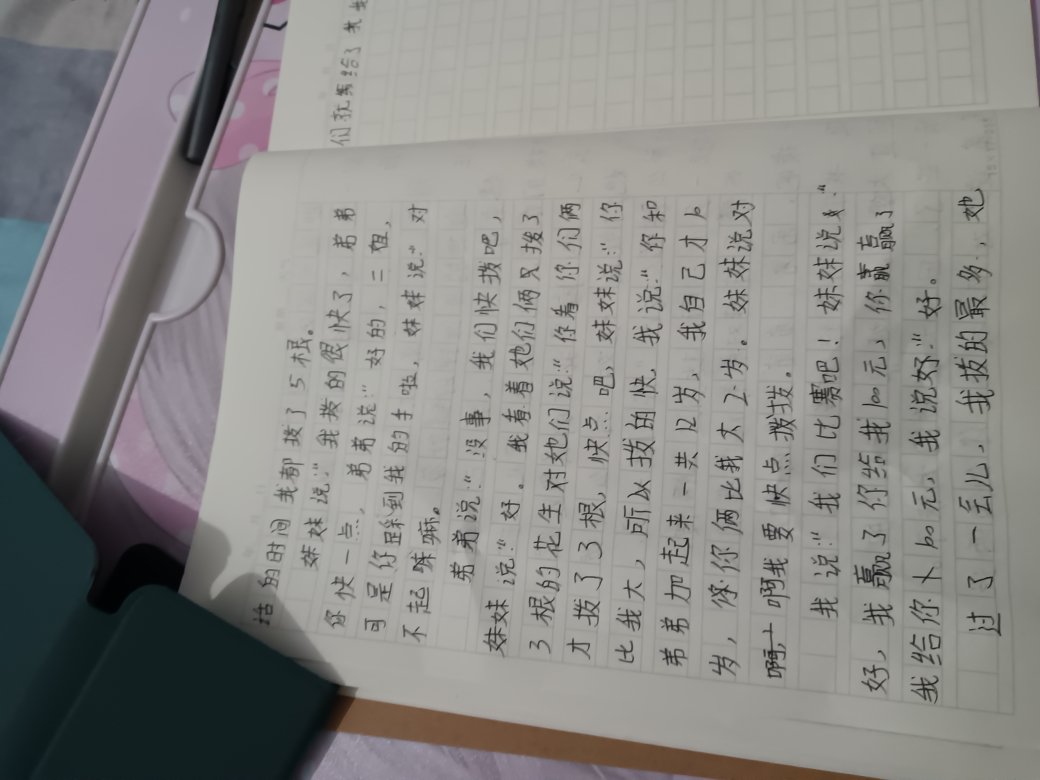 们就拿给了我
的时间我都拨了5根。
妹妹说:“我拨的很快了,弟弟
你快一点,弟弟说:“好的,三姐,
可是你踩到我的手啦,妹妹说:“对
不起嘛。
弟弟说:“没事,我们快拨吧,
妹妹说:“好。我看着她们俩又拨了
3根的花生对她们说:“你看你们俩
才拨了3根,快点吧,妹妹说:“你
比我大,所以拔的快,我说:“你和
弟弟加起来一共12岁,我自己才10
岁,你俩比我大2岁。妹妹说对
啊我要快点拨拨。
我说:“我们比赛吧!妹妹说:“
好,我赢了你给我100元,你赢了
我给你100元,我说好:“好。
过了一会儿,我拔的最多,她